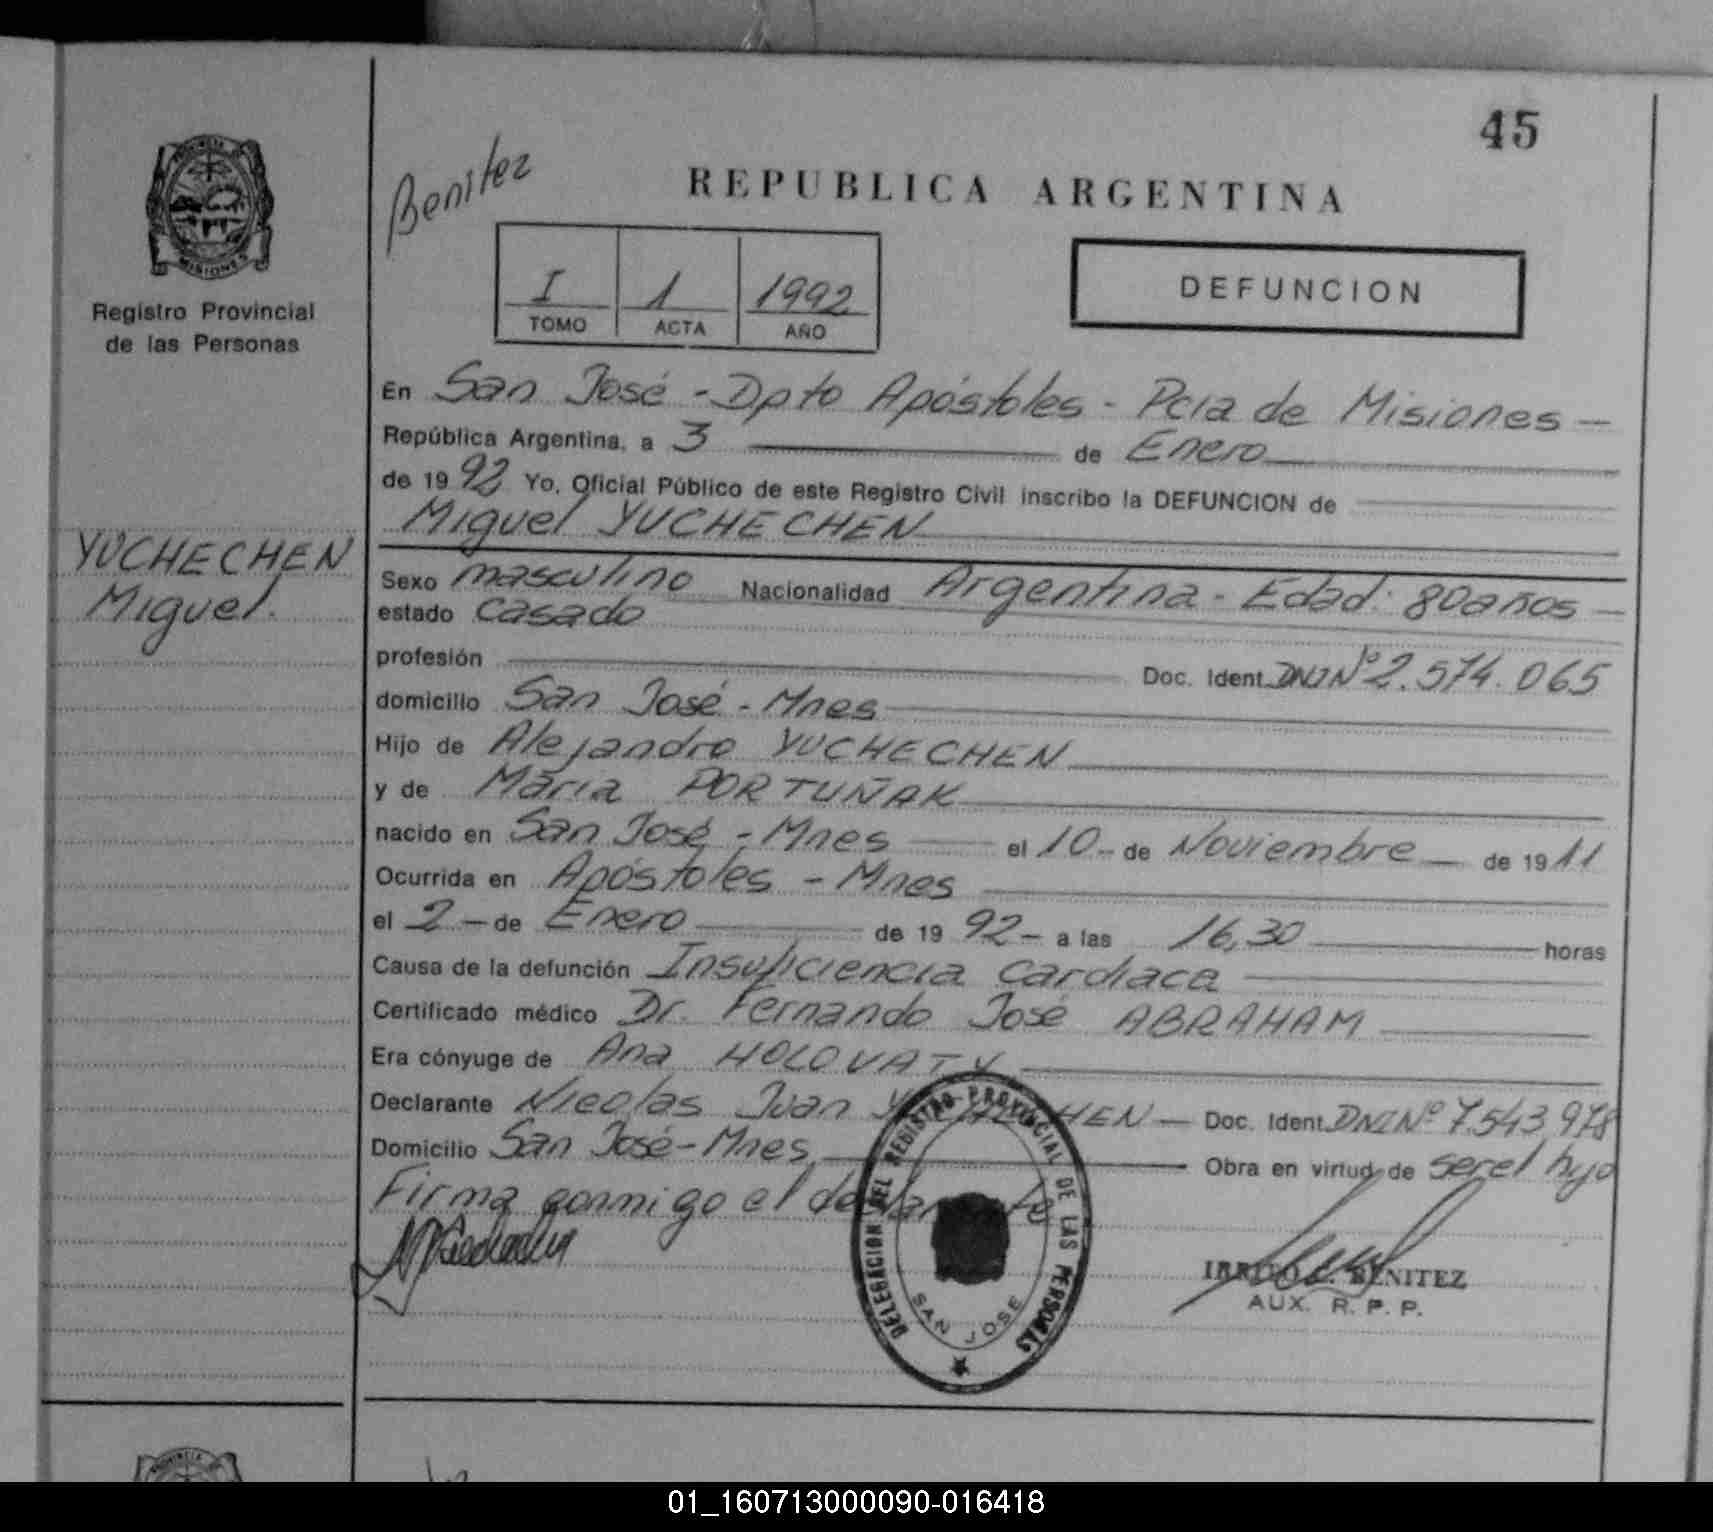 45
Benitez
REPUBLICA ARGENTINA
PROVINCIA DE
MISIONES
Registro Provincial
de las Personas
I 1 1992
TOMO ACTA AÑO
DEFUNCION
En San José - Dpto Apóstoles - Pcia de Misiones -
República Argentina, a 3 de Enero
de 1992 Yo, Oficial Público de este Registro Civil inscribo la DEFUNCION de
Miguel YUCHECHEN
YUCHECHEN
Miguel.
Sexo masculino Nacionalidad Argentina - Edad: 80 años -
estado casado
profesión Doc. Ident. DNI Nº 2.574.065
domicilio San José - Mnes
Hijo de Alejandro YUCHECHEN
y de María PORTUÑAK
nacido en San José - Mnes el 10 - de Noviembre - de 1911
Ocurrida en Apóstoles - Mnes
el 2 - de Enero de 1992 - a las 16,30 horas
Causa de la defunción Insuficiencia cardiaca
Certificado médico Dr. Fernando José ABRAHAM
Era cónyuge de Ana HOLOVATY
Declarante Nicolas Juan YUCHECHEN - Doc. Ident. DNI Nº 7.543.978
Domicilio San José - Mnes Obra en virtud de ser el hijo
Firma conmigo el declarante
DELEGACION DEL REGISTRO PROVINCIAL DE LAS PERSONAS
SAN JOSE
BENITEZ
AUX. R. P. P.
PROVINCIA
01_160713000090-016418